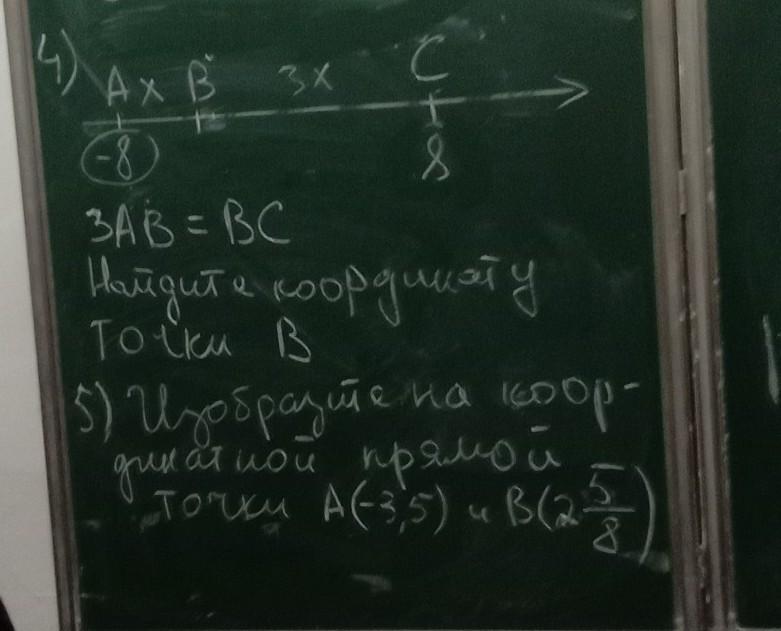 4)
A x B 3x C
-8 8
3AB = BC
Найдите координату
точки B
5) Изобразите на коор-
динатной прямой
точки A(-3,5) и B(2 5/8)